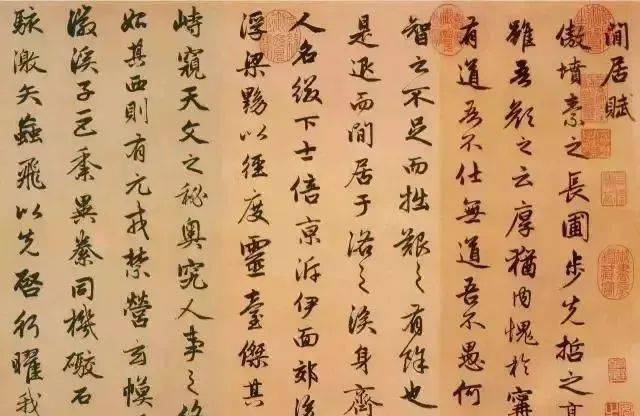 閒居賦
傲墳素之長圃步先哲之高
雖吾顏之云厚猶內愧於甯
有道吾不仕無道吾不愚何
智之不足而拙艱之有餘也
是退而閒居于洛之涘身齊
人名綴下士倍京泝伊面郊後
浮梁黝以徑度靈臺傑其
峙窺天文之秘奧究人事之終
始其西則有元戎禁營玄幙
徽溪子巨黍異絭同機礮石
駭激矢蝱飛以先啓行曜我